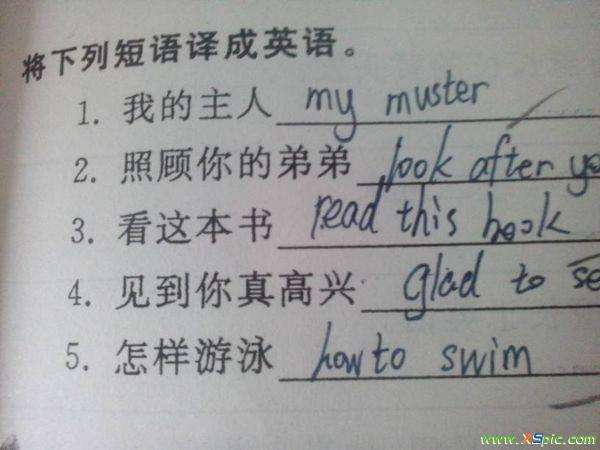 将下列短语译成英语。
1. 我的主人 my muster
2. 照顾你的弟弟 look after yo
3. 看这本书 read this book
4. 见到你真高兴 glad to se
5. 怎样游泳 how to swim
www.XSpic.com